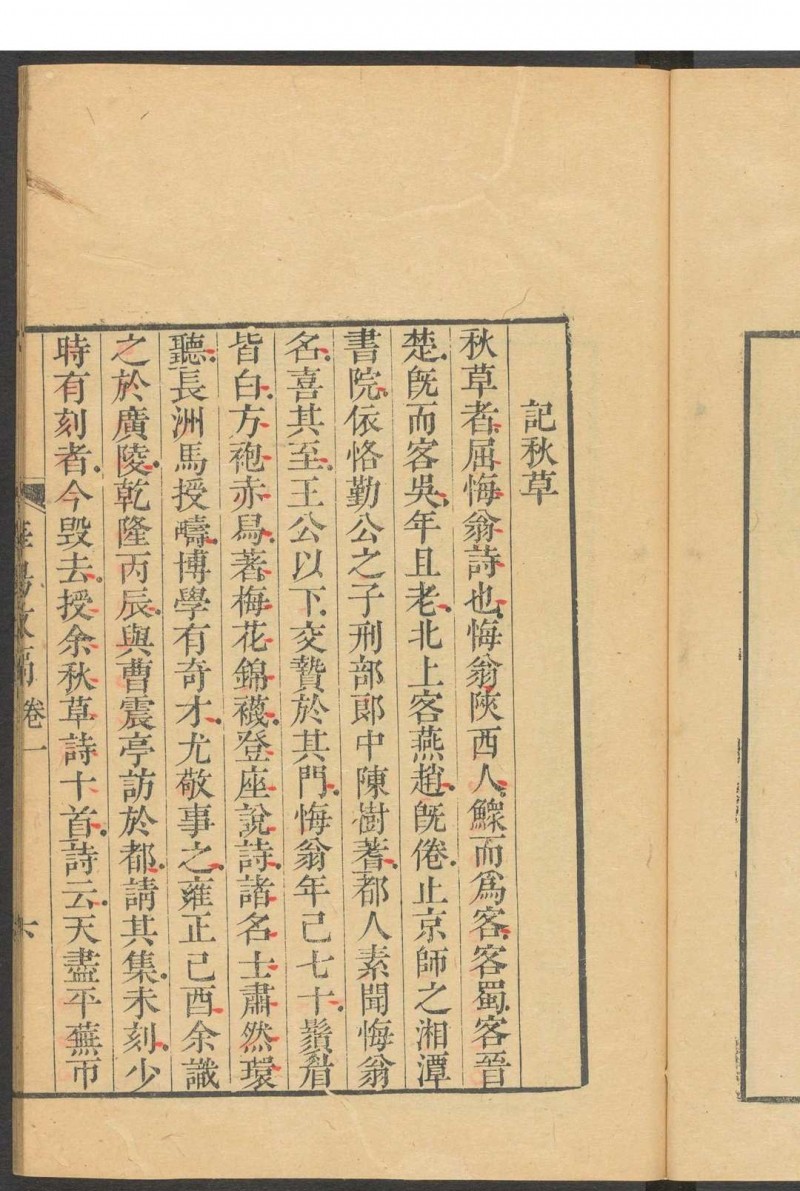 記秋草
秋草者屈悔翁詩也悔翁陝西人鰥而爲客客蜀客晉
楚旣而客吳年且老北上客燕趙旣倦止京師之湘潭
書院依恪勤公之子刑部郞中陳樹蓍都人素聞悔翁
名喜其至王公以下交贄於其門悔翁年已七十鬚眉
皆白方袍赤舄著梅花錦襪登座說詩諸名士肅然環
聽長洲馬授疇博學有奇才尤敬事之雍正己酉余識
之於廣陵乾隆丙辰與曹震亭訪於都請其集未刻少
時有刻者今毀去授余秋草詩十首詩云天盡平蕪帀
卷一
六